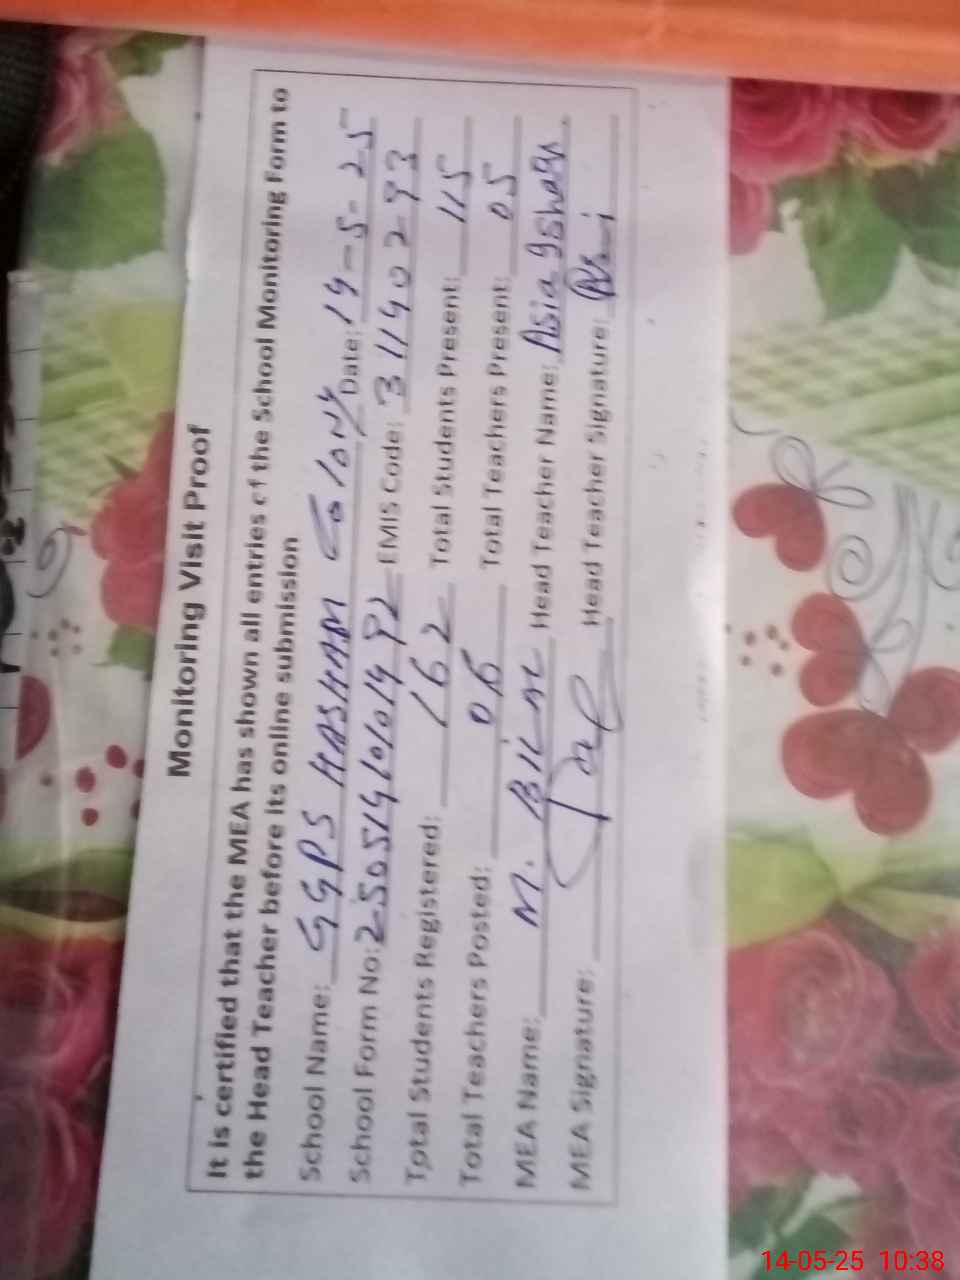 Monitoring Visit Proof
It is certified that the MEA has shown all entries of the School Monitoring Form to
the Head Teacher before its online submission
School Name: GGPS HASHAM COLONY Date: 14-5-25
School Form No: 25051410101492 EMIS Code: 31140293
Total Students Registered: 162 Total Students Present: 115
Total Teachers Posted: 06 Total Teachers Present: 05
MEA Name: M. BILAL Head Teacher Name: Asia
MEA Signature: Head Teacher Signature:
14-05-25 10:38